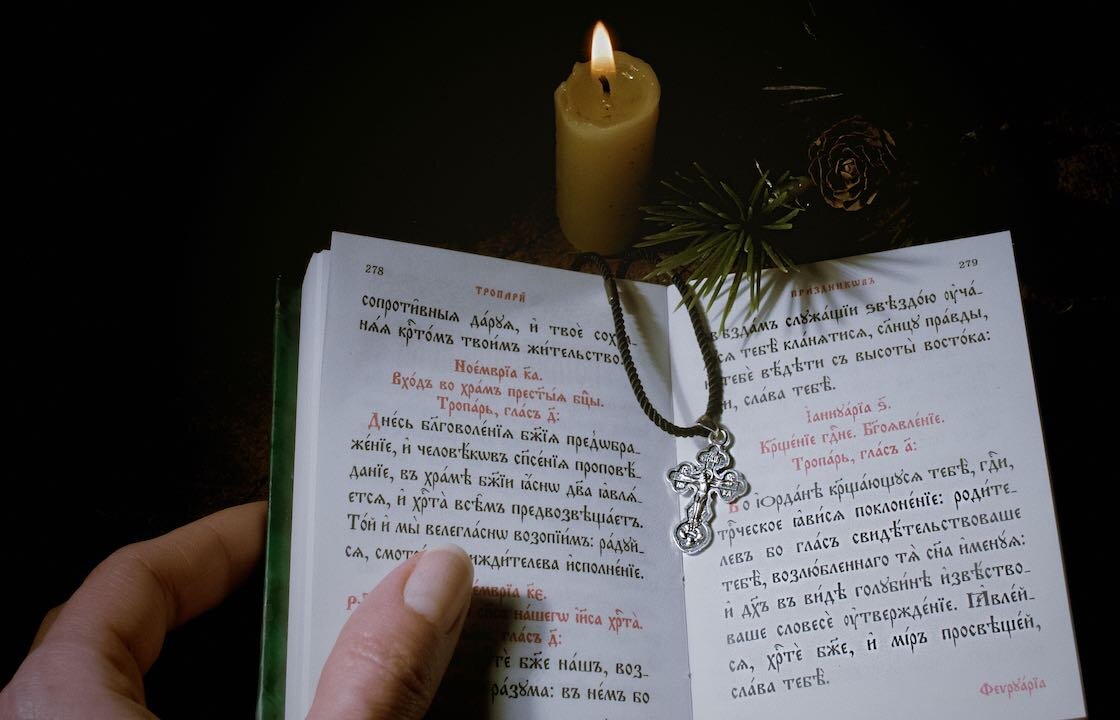 278
ТРОПАРИ̑
сопроти̑вныя да́рꙋѧ, и҆ твоѐ
нѧ́ѧ крⷭ҇то́мъ твои́мъ жи́тельство.
Ное́мврїа к҃а.
Вхо́дъ во хра́мъ прест҃ы́ѧ бц҃ы.
Тропа́рь, гла́съ д҃:
Дне́сь бл҃говоле́нїѧ бж҃їѧ предѡбра-
же́нїе, и҆ человѣ́кѡвъ сп҃се́нїѧ проповѣ́-
данїе, въ хра́мѣ бж҃їи ꙗ҆́снѡ дв҃а ꙗ҆влѧ́-
етсѧ, и҆ хрⷭ҇та̀ всѣ̑мъ предвозвѣща́етъ.
То́й и҆ мы̀ велегла́снѡ возопїи́мъ: ра́дꙋй-
сѧ, жди́телева и҆сполне́нїе.
к҃е.
на́шегѡ і҆и҃са хрⷭ҇та̀.
гла́съ д҃:
бж҃е на́шъ, воз-
ра́зꙋма: въ не́мъ бо
279
ПРАЗДНИКѠВЪ
ѕвѣзда́мъ слꙋжа́щїи ѕвѣздо́ю ᲂу҆ча́-
сѧ тебѣ̀ кла́нѧтисѧ, сл҃нцꙋ пра́вды,
тебѐ вѣ́дѣти съ высоты̀ восто́ка:
сла́ва тебѣ̀.
І҆аннꙋа́рїа ѕ҃.
Кр҃ще́нїе гдⷭ҇не. Бг҃оѧвле́нїе.
Тропа́рь, гла́съ а҃:
Во і҆ѻрда́нѣ кр҃ща́ющꙋсѧ тебѣ̀, гдⷭ҇и,
трⷪ҇ческое ꙗ҆ви́сѧ поклоне́нїе: роди́те-
левъ бо гла́съ свидѣ́тельствоваше
тебѣ̀, возлю́бленнаго тѧ̀ сн҃а и҆менꙋ́ѧ:
и҆ дх҃ъ въ ви́дѣ голꙋби́нѣ и҆звѣ́ство-
ваше словесѐ ᲂу҆твержде́нїе. Ꙗ҆вле́й-
сѧ, хрⷭ҇тѐ бж҃е, и҆ мі́ръ просвѣще́й,
сла́ва тебѣ̀.
Феврꙋа́рїа